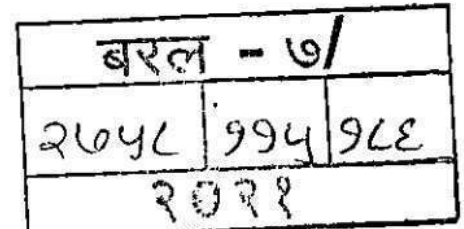 बरल - ७/
२७५८ ११५ १८६
२०२१